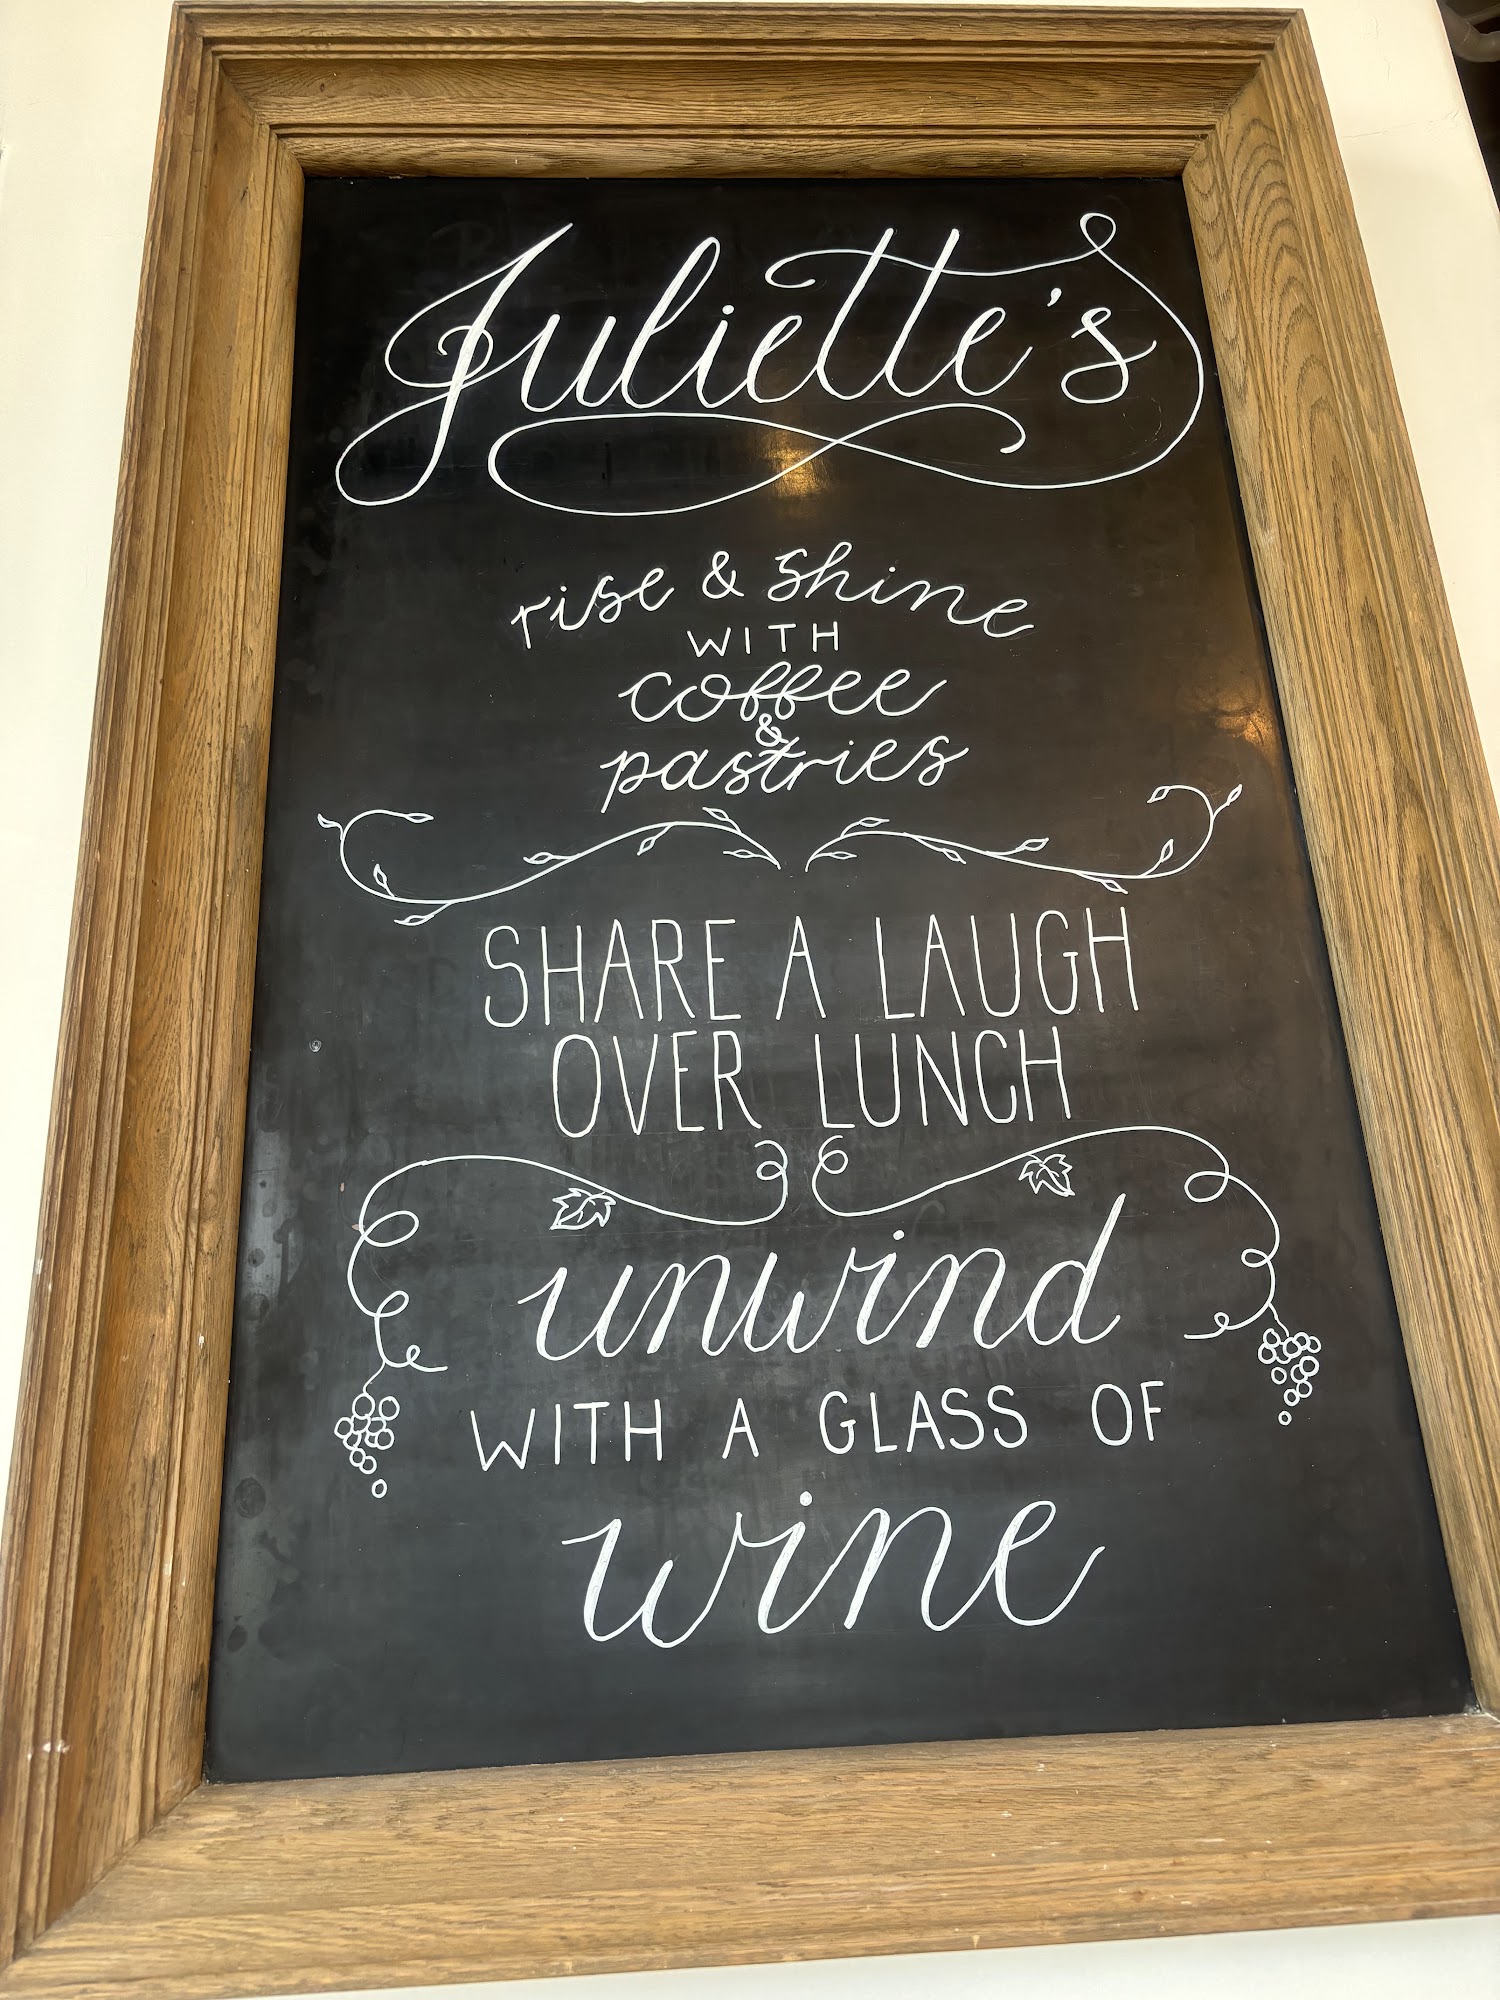 Juliette's
rise & shine
WITH
coffee
&
pastries
SHARE A LAUGH
OVER LUNCH
unwind
WITH A GLASS OF
wine